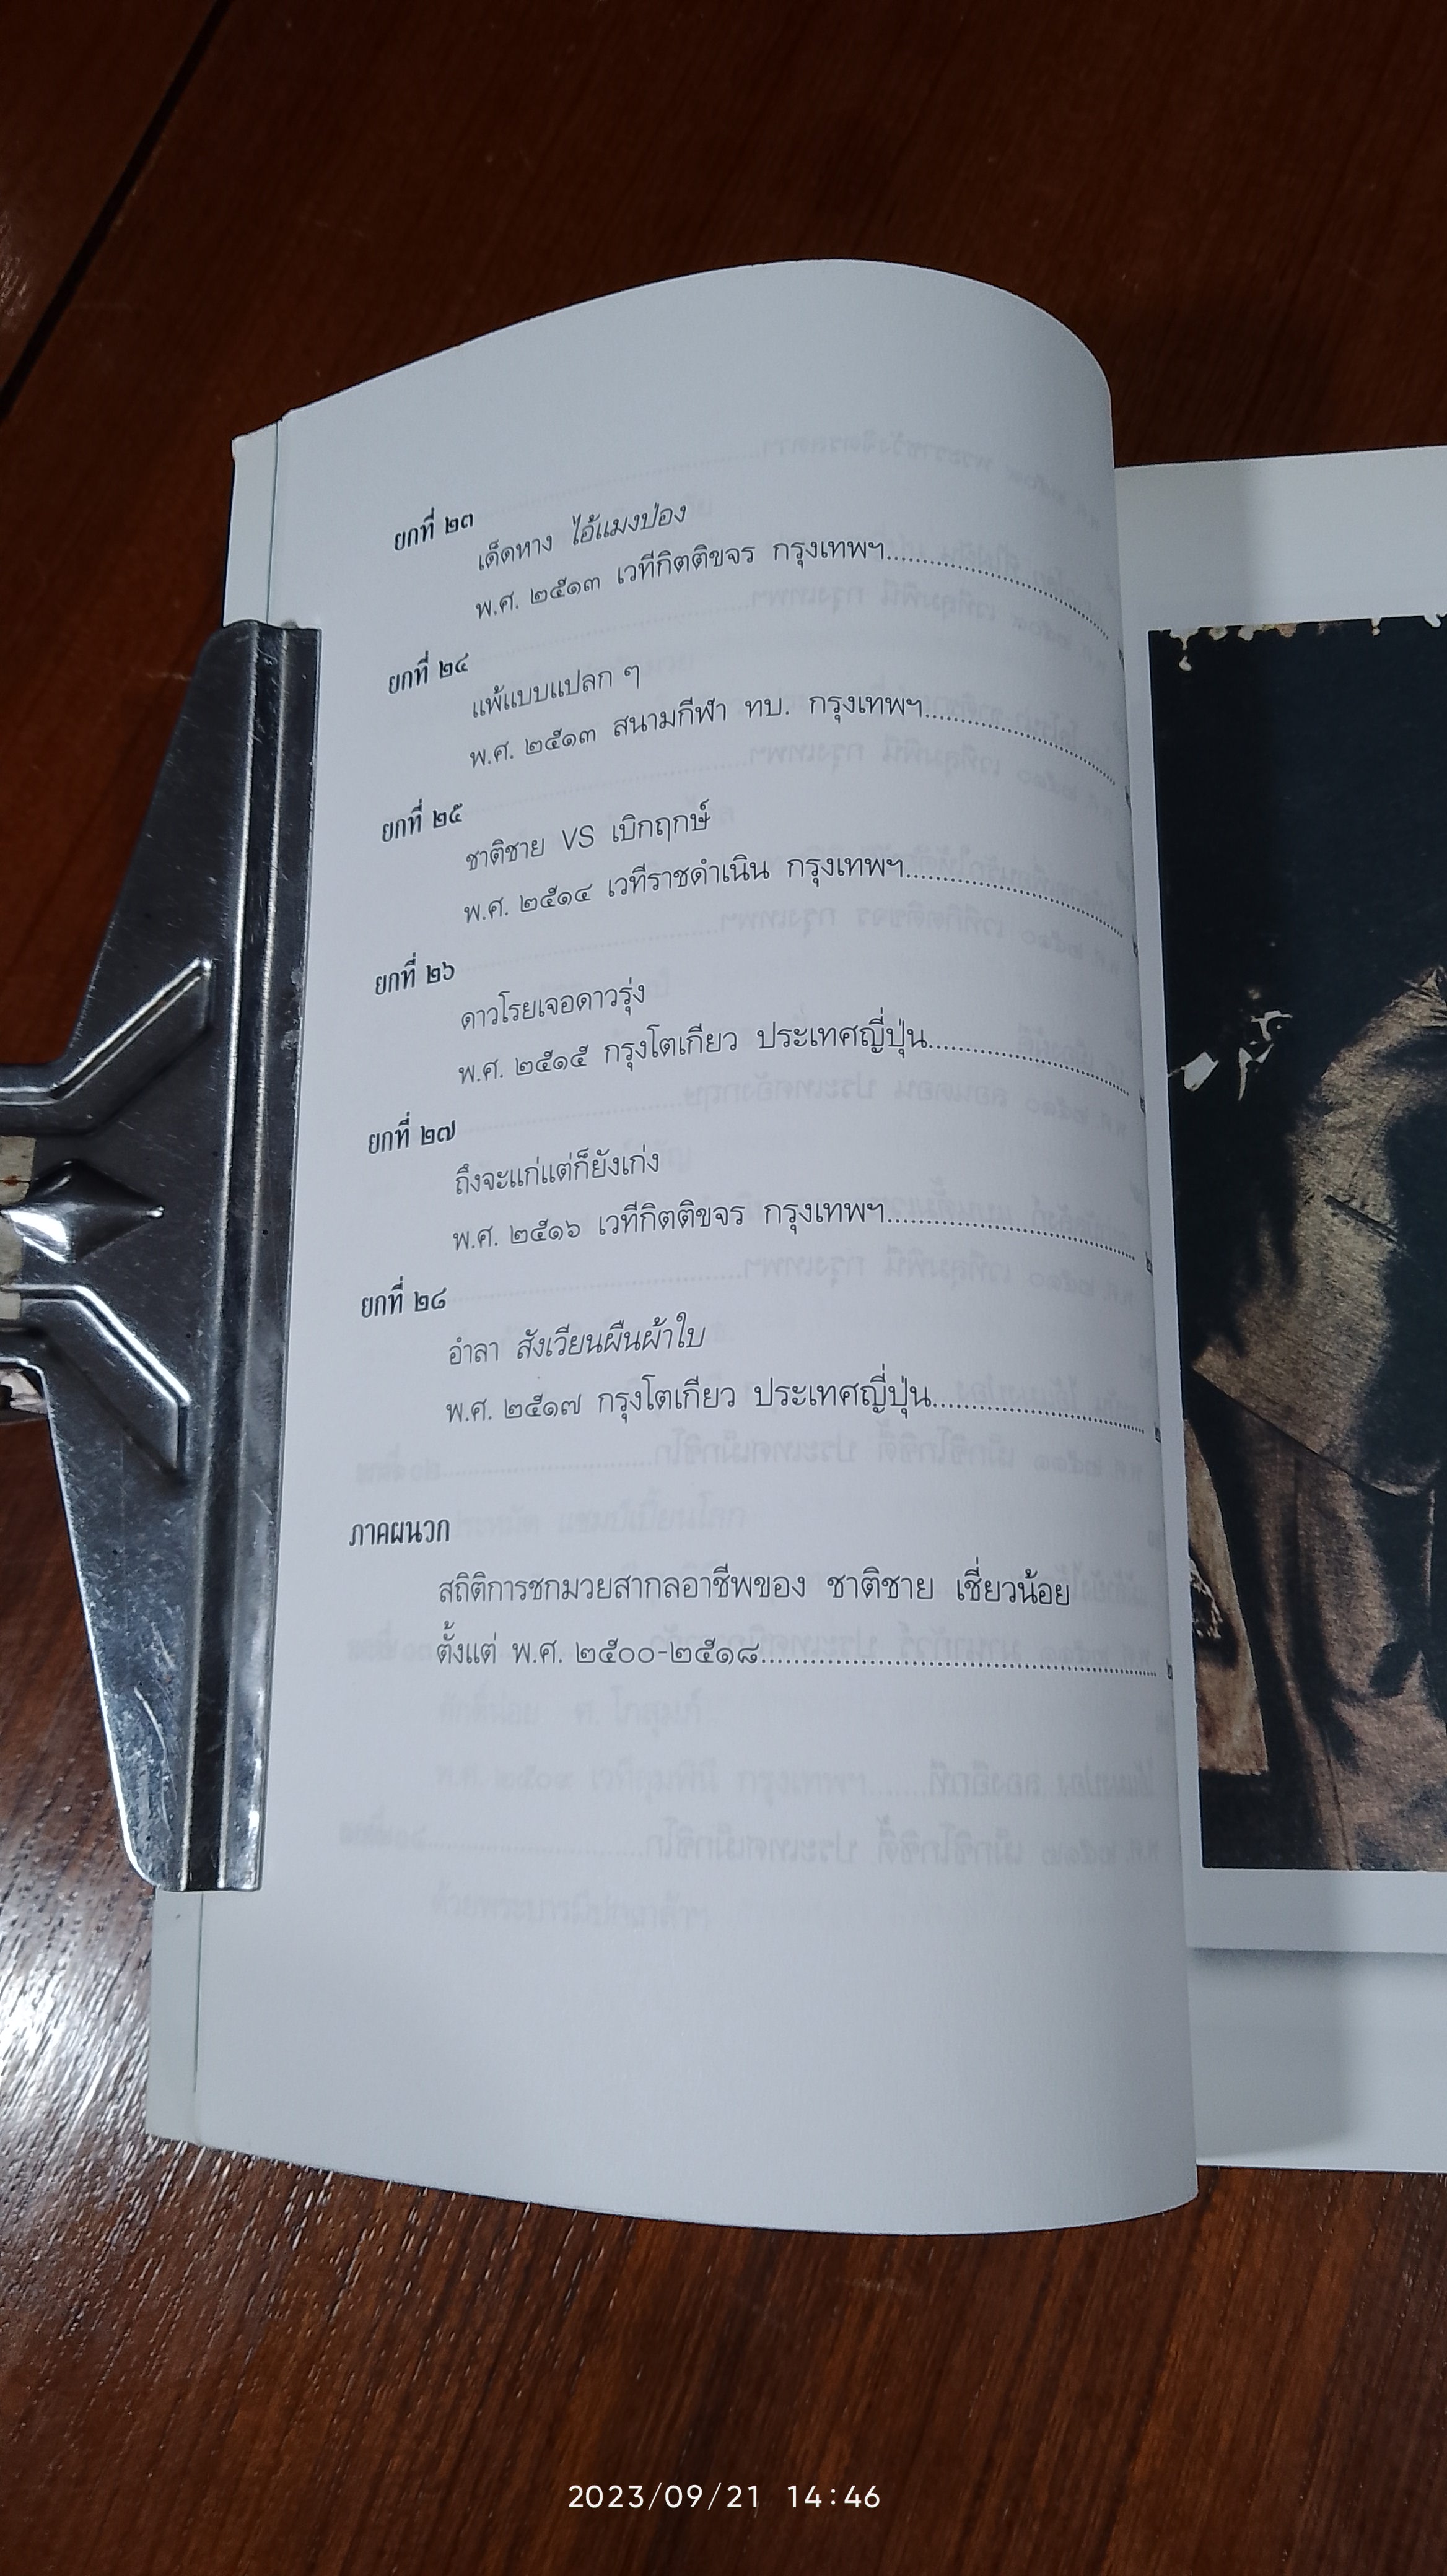 ยกที่ ๒๓
เด็ดหาง ไอ้แมงป่อง
พ.ศ. ๒๕๑๓ เวทีกิตติขจร กรุงเทพฯ
ยกที่ ๒๔
แพ้แบบแปลก ๆ
พ.ศ. ๒๕๑๓ สนามกีฬา ทบ. กรุงเทพฯ
ยกที่ ๒๕
ชาติชาย VS เบิกฤกษ์
พ.ศ. ๒๕๑๔ เวทีราชดำเนิน กรุงเทพฯ
ยกที่ ๒๖
ดาวโรยเจอดาวรุ่ง
พ.ศ. ๒๕๑๕ กรุงโตเกียว ประเทศญี่ปุ่น
ยกที่ ๒๗
ถึงจะแก่แต่ก็ยังเก่ง
พ.ศ. ๒๕๑๖ เวทีกิตติขจร กรุงเทพฯ
ยกที่ ๒๘
อำลา สังเวียนผืนผ้าใบ
พ.ศ. ๒๕๑๗ กรุงโตเกียว ประเทศญี่ปุ่น
ภาคผนวก
สถิติการชกมวยสากลอาชีพของ ชาติชาย เชี่ยวน้อย
ตั้งแต่ พ.ศ. ๒๕๐๐-๒๕๑๘
2023/09/21 14:46